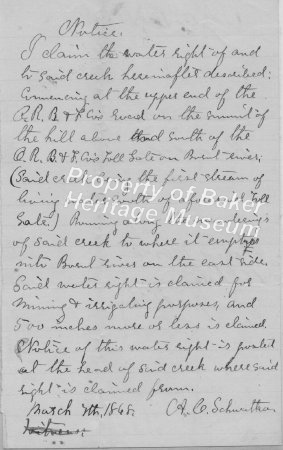 Notice.
I claim the water right of and
to said creek hereinafter described:
Comencing at the upper end of the
B.R.B & F. Co's Road on the sumit of
the hill above and south of the
B.R.B & F. Co's Toll Gate on Burnt river.
(Said creek being the first stream of
living water south of aforesaid Toll
Gate.) Running along the meanderings
of said creek to where it emptys
into Burnt river on the east side.
Said water right is claimed for
mining & irrigating purposes, and
500 inches more or less is claimed.
Notice of this water right is posted
at the head of said creek where said
right is claimed from.
March 7th, 1868.
Witness:
Property of Baker
Heritage Museum